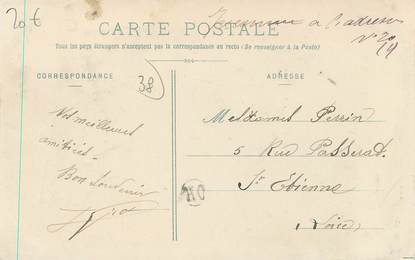 20€
à l'adresse
CARTE POSTALE
Tous les pays étrangers n'acceptent pas la correspondance au recto (Se renseigner à la Poste)
CORRESPONDANCE
38
ADRESSE
Nos meilleures
amitiés
Bon Souvenir
Mesdames Perrin
5 Rue Passerat
St Etienne
Loire
OH